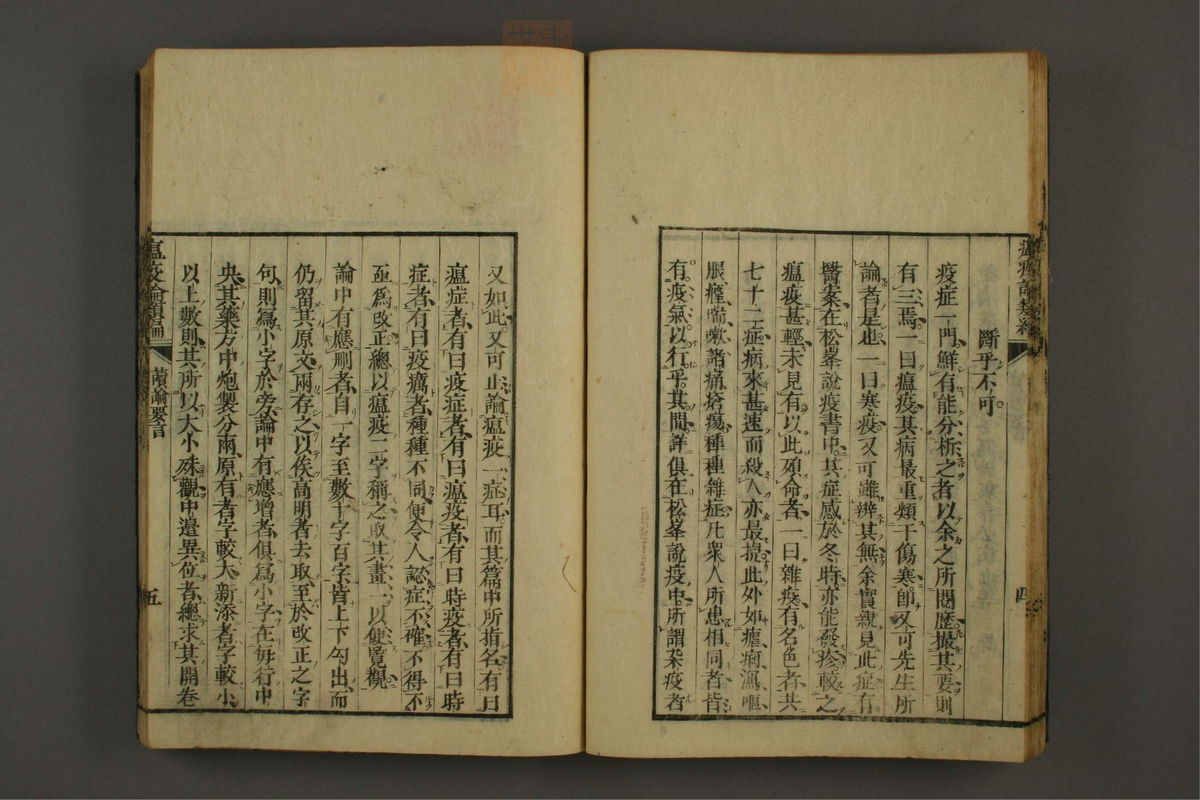 斷乎不可
疫症一門鮮有能分析之者以余之所閱歷撮其要則
有三焉一曰瘟疫其病最重類于傷寒卽又可先生所
論者是也一曰寒疫又可雖辨其無余實親見此症有
醫案在松峯說疫書中其症感於冬時亦能發疹較之
瘟疫甚輕未見有以此殞命者一曰雜疫有名色者共
七十二症病來甚速而殺人亦最捷此外如瘧痢瀉嘔
脹癉喘嗽諸痛瘡瘍種種雜症凡衆人所患相同者皆
有疫氣以行乎其間詳俱在松峯說疫中所謂杂疫者
四
又如此又可止論瘟疫一症耳而其篇中所指名有曰
瘟症者有曰疫症者有曰瘟疫者有曰時疫者有曰時
症者有曰疫癘者種種不同使令人認症不確不得不
亟爲改正總以瘟疫二字稱之取其畫一以便覧觀
論中有應刪者自一字至數十字百字皆上下勾出而
仍留其原文兩存之以俟高明者去取至於改正之字
句則爲小字於旁論中有應增者俱爲小字在每行中
央其藥方中炮製分兩原有者字較大新添者字較小
以上數則其所以大小殊觀中邉異位者總求其開卷
瘟疫論類編
讀論要言
五